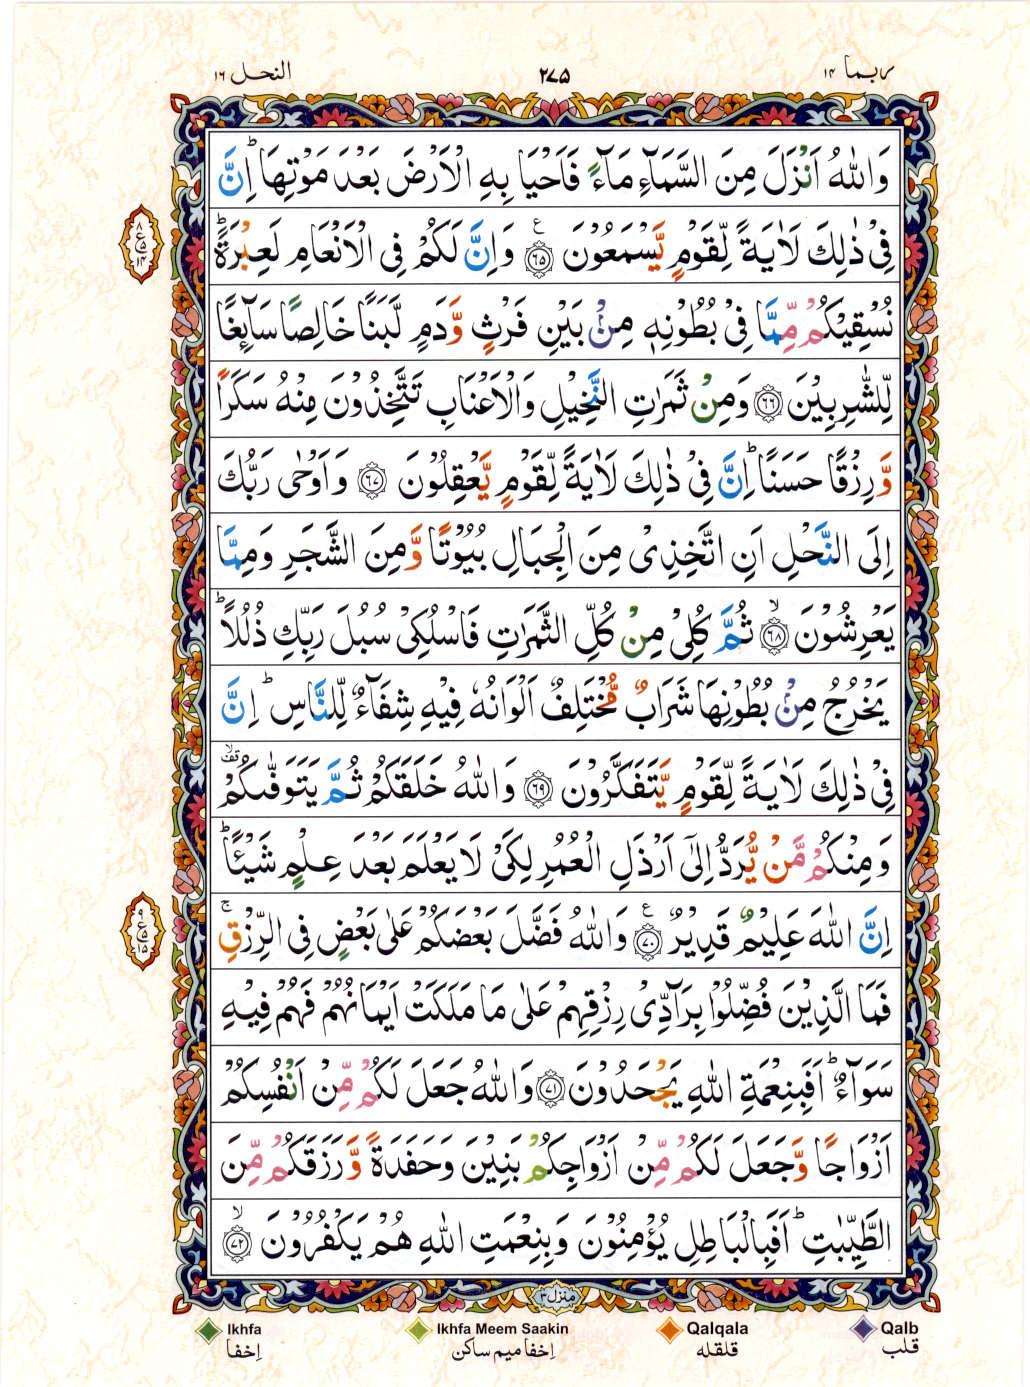 ربما ١۴
٢٧۵
النحل ١٦
وَاللّٰهُ اَنْزَلَ مِنَ السَّمَآءِ مَآءً فَاَحْيَا بِهِ الْاَرْضَ بَعْدَ مَوْتِهَا ؕ اِنَّ
فِیْ ذٰلِكَ لَاٰيَةً لِّقَوْمٍ يَّسْمَعُوْنَ ﴿٦۵﴾ ع وَاِنَّ لَكُمْ فِی الْاَنْعَامِ لَعِبْرَةً ؕ
نُسْقِيْكُمْ مِّمَّا فِیْ بُطُوْنِهٖ مِنْۢ بَيْنِ فَرْثٍ وَّدَمٍ لَّبَنًا خَالِصًا سَآئِغًا
لِّلشّٰرِبِيْنَ ﴿٦٦﴾ وَمِنْ ثَمَرٰتِ النَّخِيْلِ وَالْاَعْنَابِ تَتَّخِذُوْنَ مِنْهُ سَكَرًا
وَّرِزْقًا حَسَنًا ؕ اِنَّ فِیْ ذٰلِكَ لَاٰيَةً لِّقَوْمٍ يَّعْقِلُوْنَ ﴿٦٧﴾ وَاَوْحٰى رَبُّكَ
اِلَى النَّحْلِ اَنِ اتَّخِذِیْ مِنَ الْجِبَالِ بُيُوْتًا وَّمِنَ الشَّجَرِ وَمِمَّا
يَعْرِشُوْنَ ﴿٦٨﴾ ۙ ثُمَّ كُلِیْ مِنْ كُلِّ الثَّمَرٰتِ فَاسْلُكِیْ سُبُلَ رَبِّكِ ذُلُلًا ؕ
يَخْرُجُ مِنْۢ بُطُوْنِهَا شَرَابٌ مُّخْتَلِفٌ اَلْوَانُهٗ فِيْهِ شِفَآءٌ لِّلنَّاسِ ؕ اِنَّ
فِیْ ذٰلِكَ لَاٰيَةً لِّقَوْمٍ يَّتَفَكَّرُوْنَ ﴿٦٩﴾ وَاللّٰهُ خَلَقَكُمْ ثُمَّ يَتَوَفّٰىكُمْ ۙقف
وَمِنْكُمْ مَّنْ يُّرَدُّ اِلٰٓى اَرْذَلِ الْعُمُرِ لِكَیْ لَا يَعْلَمَ بَعْدَ عِلْمٍ شَيْـًٔا ؕ
اِنَّ اللّٰهَ عَلِيْمٌ قَدِيْرٌ ﴿٧٠﴾ ع وَاللّٰهُ فَضَّلَ بَعْضَكُمْ عَلٰى بَعْضٍ فِی الرِّزْقِ ۚ
فَمَا الَّذِيْنَ فُضِّلُوْا بِرَآدِّیْ رِزْقِهِمْ عَلٰى مَا مَلَكَتْ اَيْمَانُهُمْ فَهُمْ فِيْهِ
سَوَآءٌ ؕ اَفَبِنِعْمَةِ اللّٰهِ يَجْحَدُوْنَ ﴿٧١﴾ وَاللّٰهُ جَعَلَ لَكُمْ مِّنْ اَنْفُسِكُمْ
اَزْوَاجًا وَّجَعَلَ لَكُمْ مِّنْ اَزْوَاجِكُمْ بَنِيْنَ وَحَفَدَةً وَّرَزَقَكُمْ مِّنَ
الطَّيِّبٰتِ ؕ اَفَبِالْبَاطِلِ يُؤْمِنُوْنَ وَبِنِعْمَتِ اللّٰهِ هُمْ يَكْفُرُوْنَ ﴿٧٢﴾ ۙ
منزل ٣
Ikhfa
Ikhfa Meem Saakin
Qalqala
Qalb
اِخفا
اِخفا ميم ساكن
قلقله
قلب